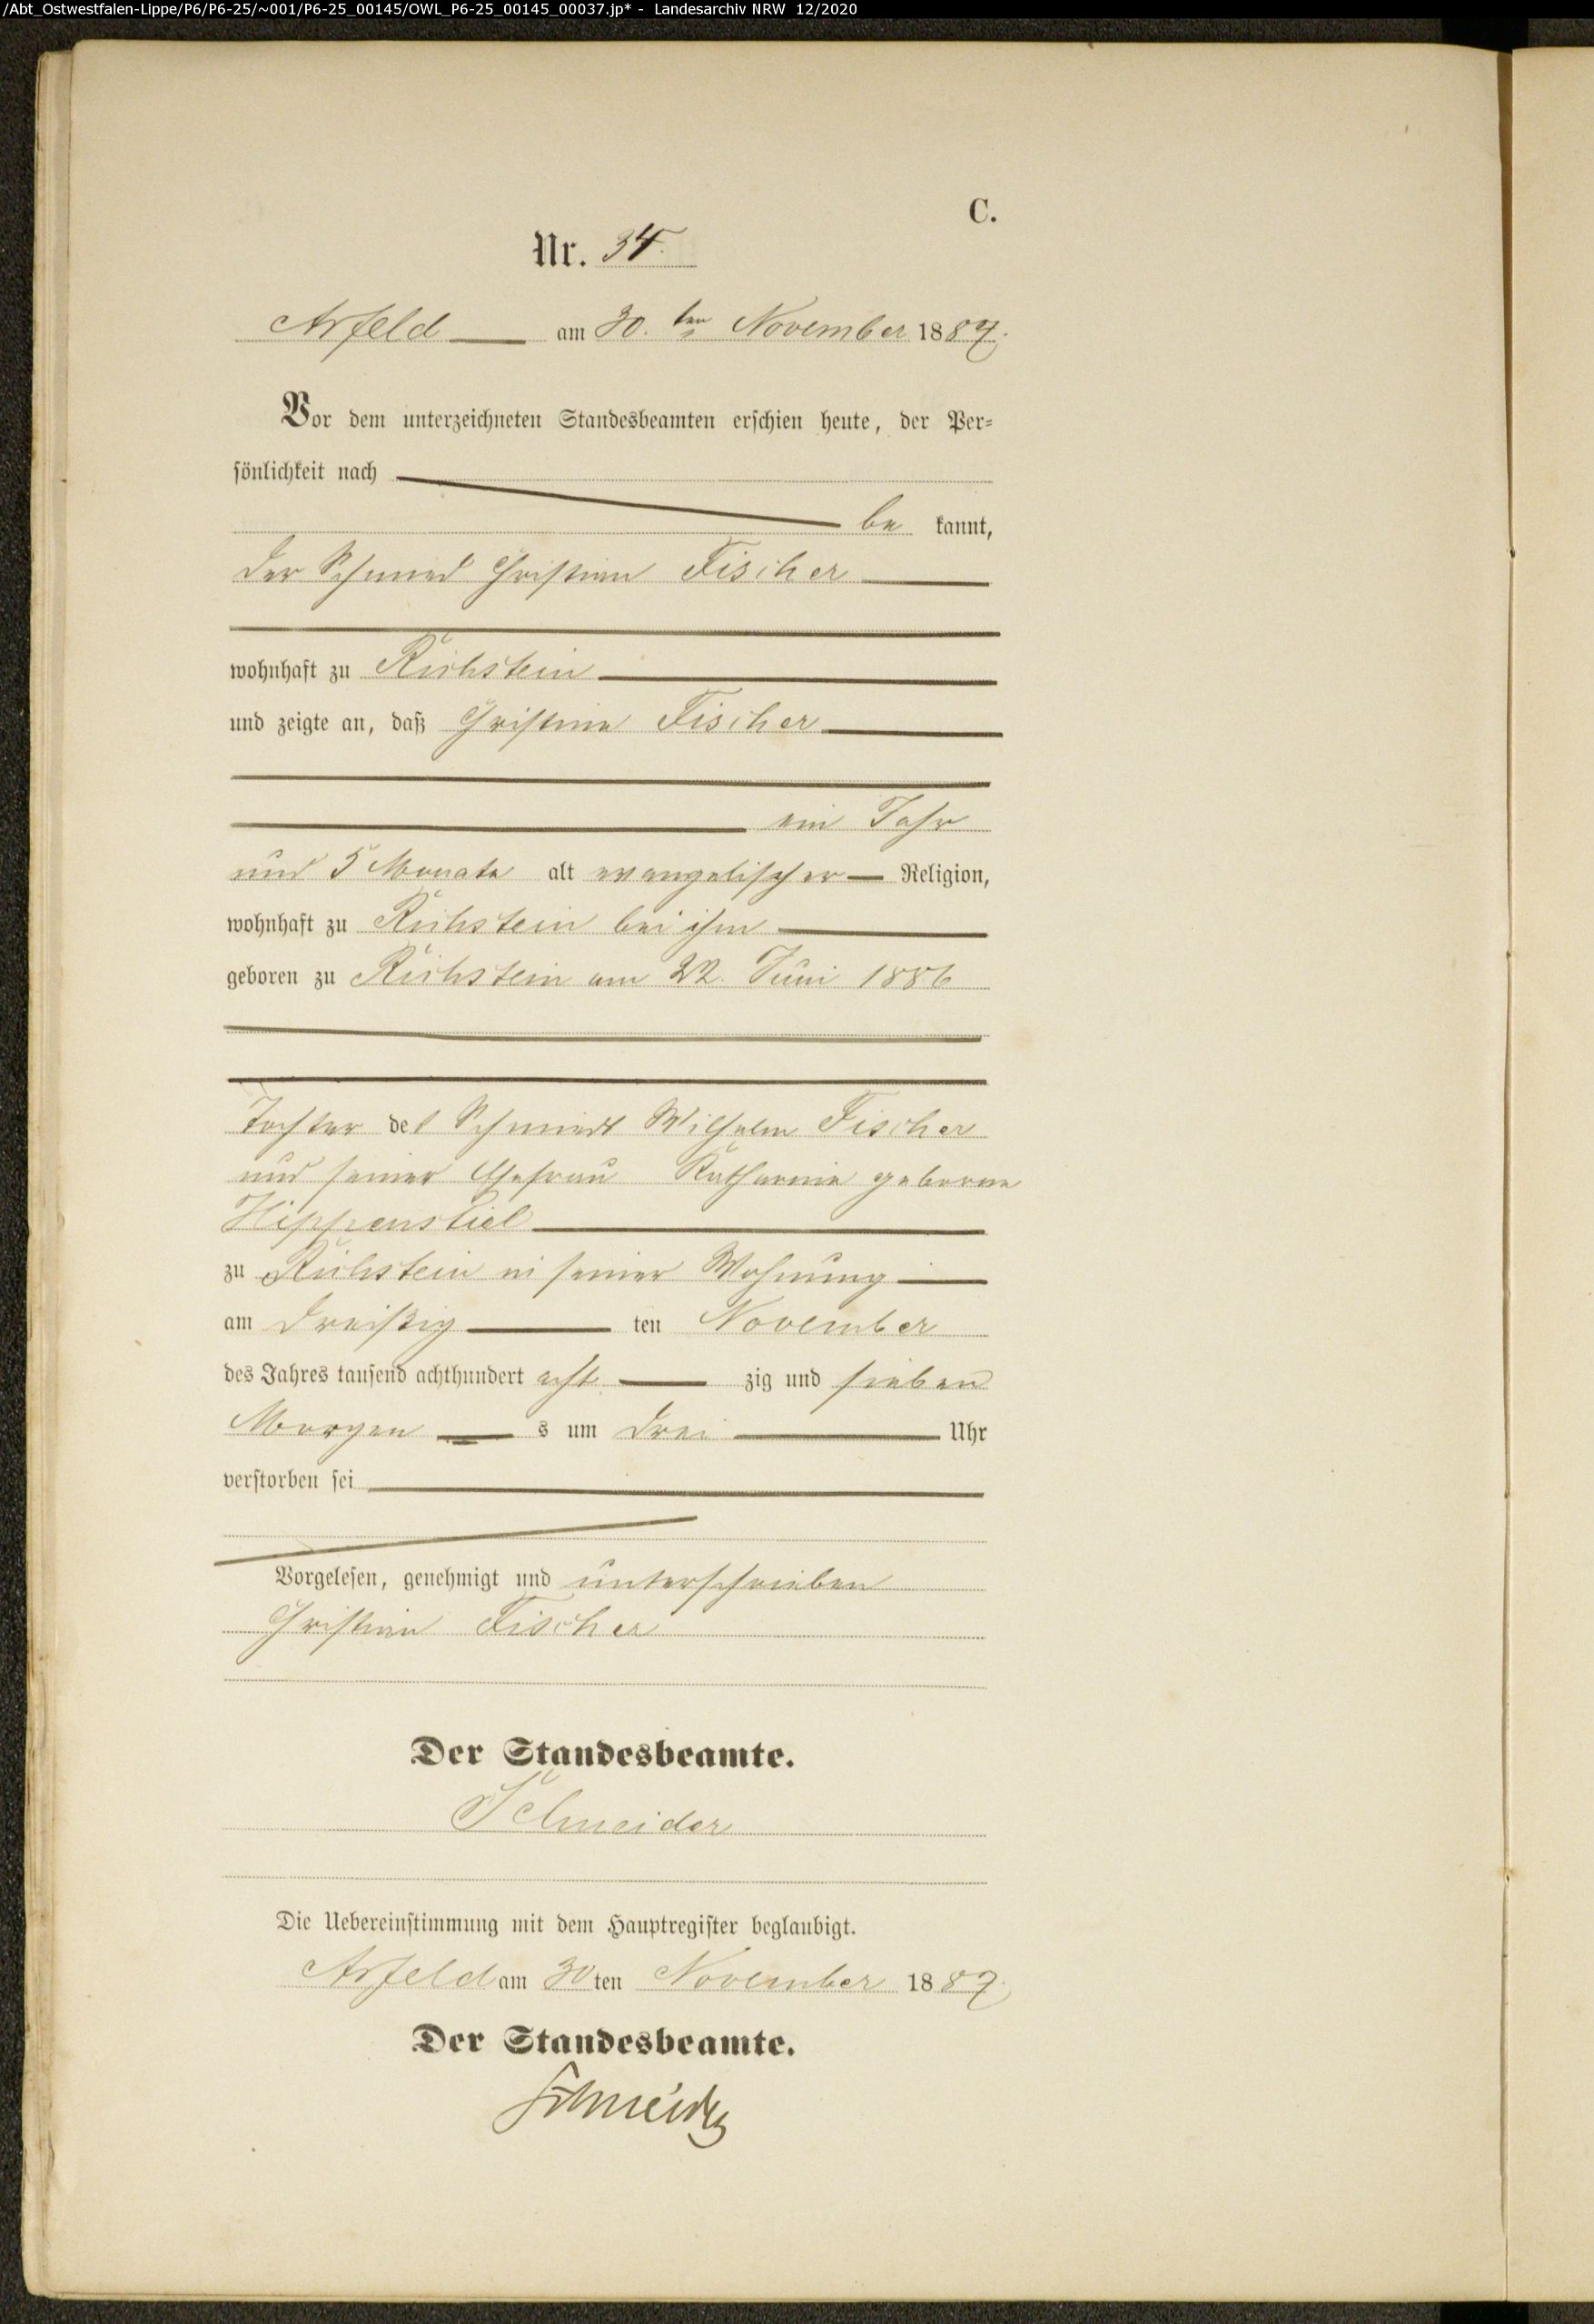 /Abt_Ostwestfalen-Lippe/P6/P6-25/~001/P6-25_00145/OWL_P6-25_00145_00037.jp* - Landesarchiv NRW 12/2020
C.
Nr. 34.
Arfeld am 30.ten November 1887.
Vor dem unterzeichneten Standesbeamten erschien heute, der Per-
sönlichkeit nach
be kannt,
der Schmied Christian Fischer
wohnhaft zu Richstein
und zeigte an, daß Christine Fischer
ein Jahr
und 5 Monate alt evangelischer Religion,
wohnhaft zu Richstein bei ihm
geboren zu Richstein am 22. Juni 1886
Tochter des Schmiedt Wilhelm Fischer
und seiner Ehefrau Katharine geborne
Hippenstiel
zu Richstein in seiner Wohnung
am dreißig ten November
des Jahres tausend achthundert acht zig und sieben
Morgen s um drei Uhr
verstorben sei
Vorgelesen, genehmigt und unterschrieben
Christian Fischer
Der Standesbeamte.
Schneider
Die Uebereinstimmung mit dem Hauptregister beglaubigt.
Arfeld am 30 ten November 1887.
Der Standesbeamte.
Schneider